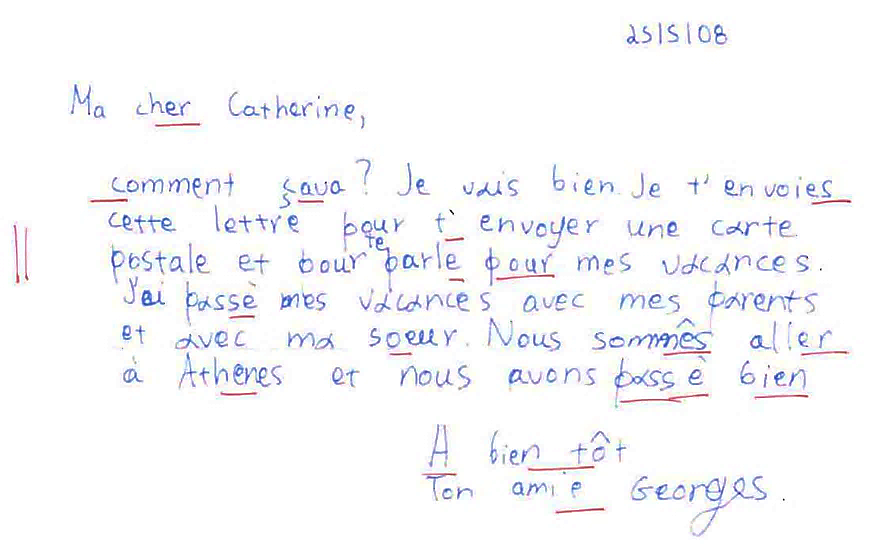 25/5/08
Ma cher Catherine,
comment şava? Je vais bien. Je t'envoies
cette lettre pour t' envoyer une carte
postale et pour te parle pour mes vacances.
J'ai passè mes vacances avec mes parents
et avec ma soeur. Nous sommês aller
à Athenes et nous avons passè bien
A bien tôt
Ton amie Georges.